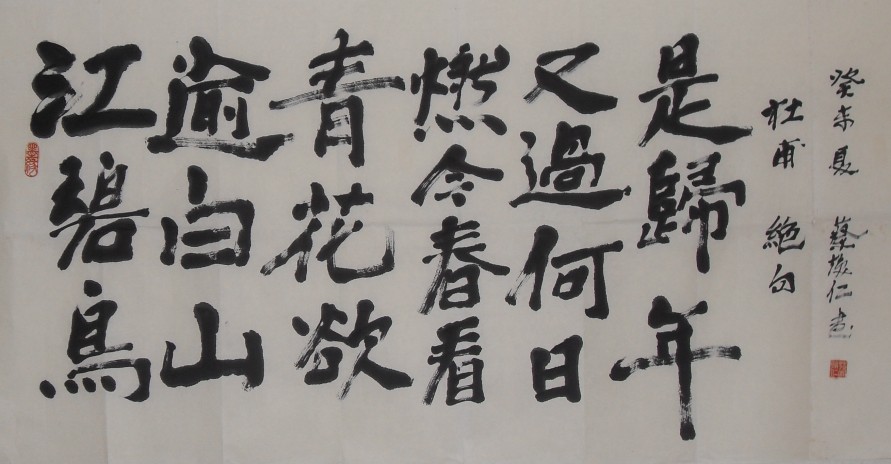 江碧鳥
逾白山
青花欲
燃今春看
又過何日
是歸年
杜甫 絕句
癸未夏 蔡仁書